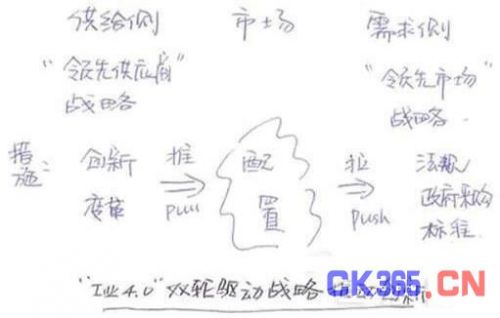 供给侧 市场 需求侧
"领先供应商" "领先市场"
战略 战略
措施: 创新 推 配 拉 法规
变革 pull 置 push 政府采购
标准
"工业4.0"双轮驱动战略
CK365.CN